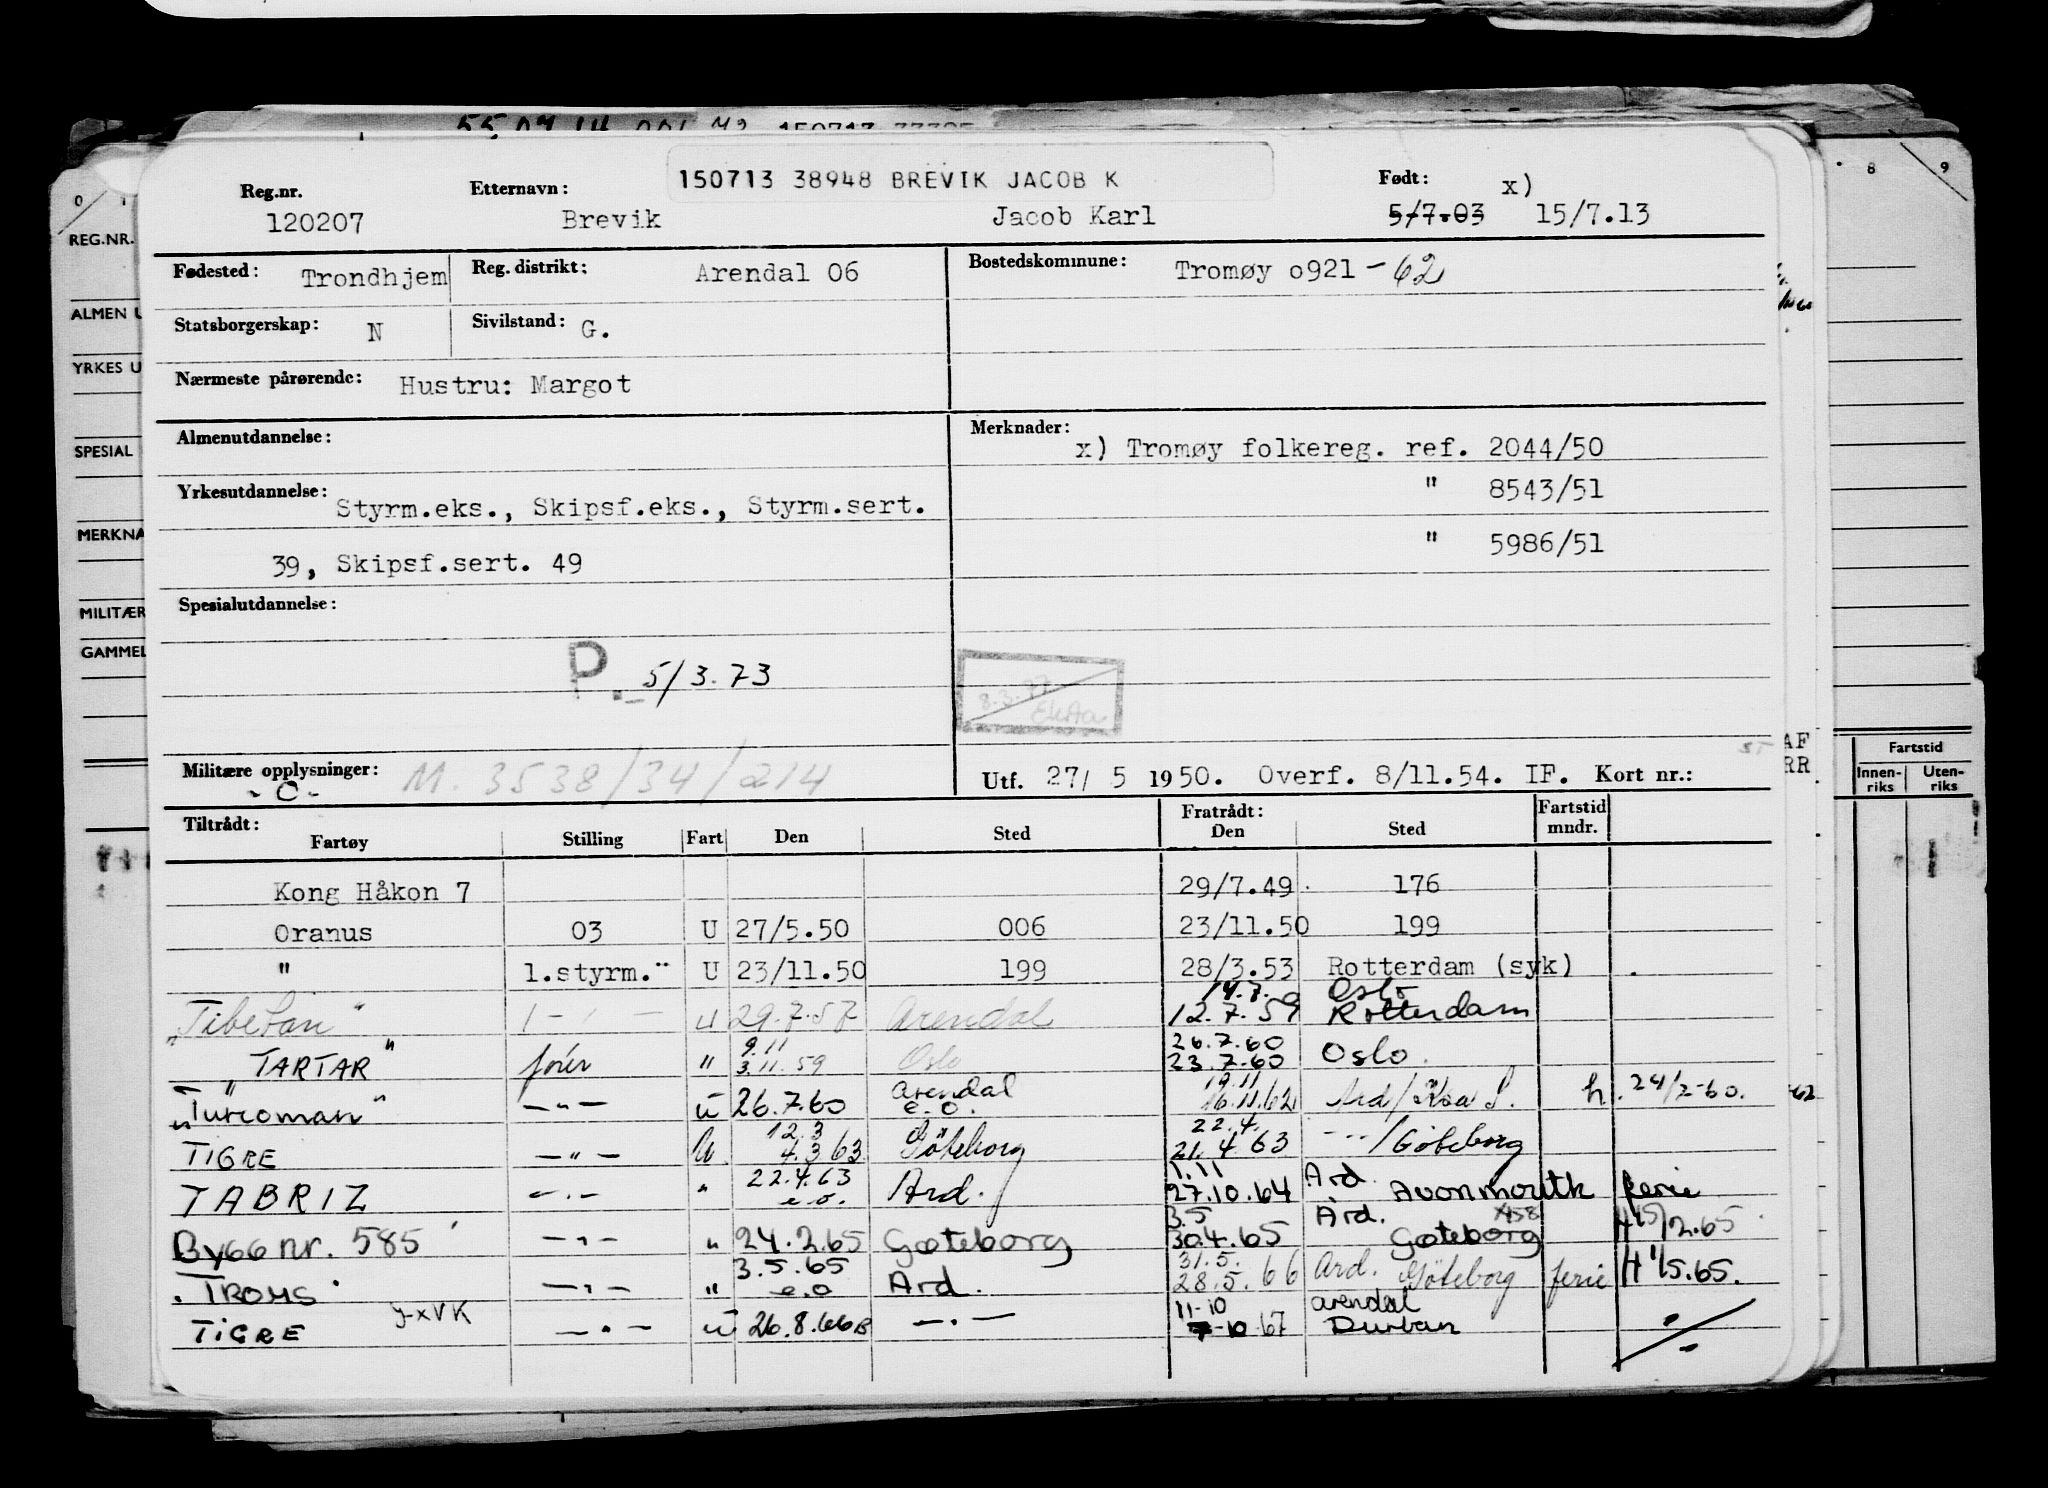 150713 38948 BREVIK JACOB K
Reg.nr. Etternavn: Født: x)
120207 Brevik Jacob Karl 5/7.03 15/7.13
Fødested: Trondhjem Reg. distrikt: Arendal 06 Bostedskommune: Tromøy o921-62
Statsborgerskap: N Sivilstand: G.
Nærmeste pårørende: Hustru: Margot
Almenutdannelse: Merknader:
x) Tromøy folkereg. ref. 2044/50
Yrkesutdannelse: Styrm.eks., Skipsf.eks., Styrm.sert. " 8543/51
39, Skipsf.sert. 49 " 5986/51
Spesialutdannelse:
P. 5/3.73
8.3.77
Militære opplysninger: M. 3538/34/214 Utf. 27/ 5 1950. Overf. 8/11.54. IF. Kort nr.:
-C-
Tiltrådt: Fratrådt: Fartstid
Fartøy Stilling Fart Den Sted Den Sted mndr.
Kong Håkon 7 29/7.49 176
Oranus 03 U 27/5.50 006 23/11.50 199
" 1.styrm." U 23/11.50 199 28/3.53 Rotterdam (syk)
14.7. Oslo
"Tibetan" 1 - " - U 29.7.57 Arendal 12.7.59 Rotterdam
9.11 26.7.60
"TARTAR" fører " 3.11.59 Oslo 23.7.60 Oslo
Arendal 19.11
"Turcoman" -"- U 26.7.60 e.o. 16.11.62 h. 24/2-60.
12.3 22.4.
TIGRE -"- U 4.3 63 Göteborg 21.4 63 -"-/Göteborg
22.4.63 1.11 Ard.
TABRIZ -"- " e.o. Ard. 27.10.64 Avonmouth ferie
3.5 Ard.
Bygg nr. 585 -"- " 24.2.65 Gøteborg 30.4.65 Gøteborg H 15/2.65
3.5.65 31.5. Ard.
"TROMS" -"- " e.o Ard. 28.5.66 Göteborg ferie H 1/5.65.
11-10 Arendal
TIGRE JXVK -"- U 26.8.66 -"- 7-10 67 Durban
REG.NR.
YRKES U
SPESIAL
MERKNA
MILITÆR
GAMMEL
8 9
Fartstid
Innen-riks Uten-riks